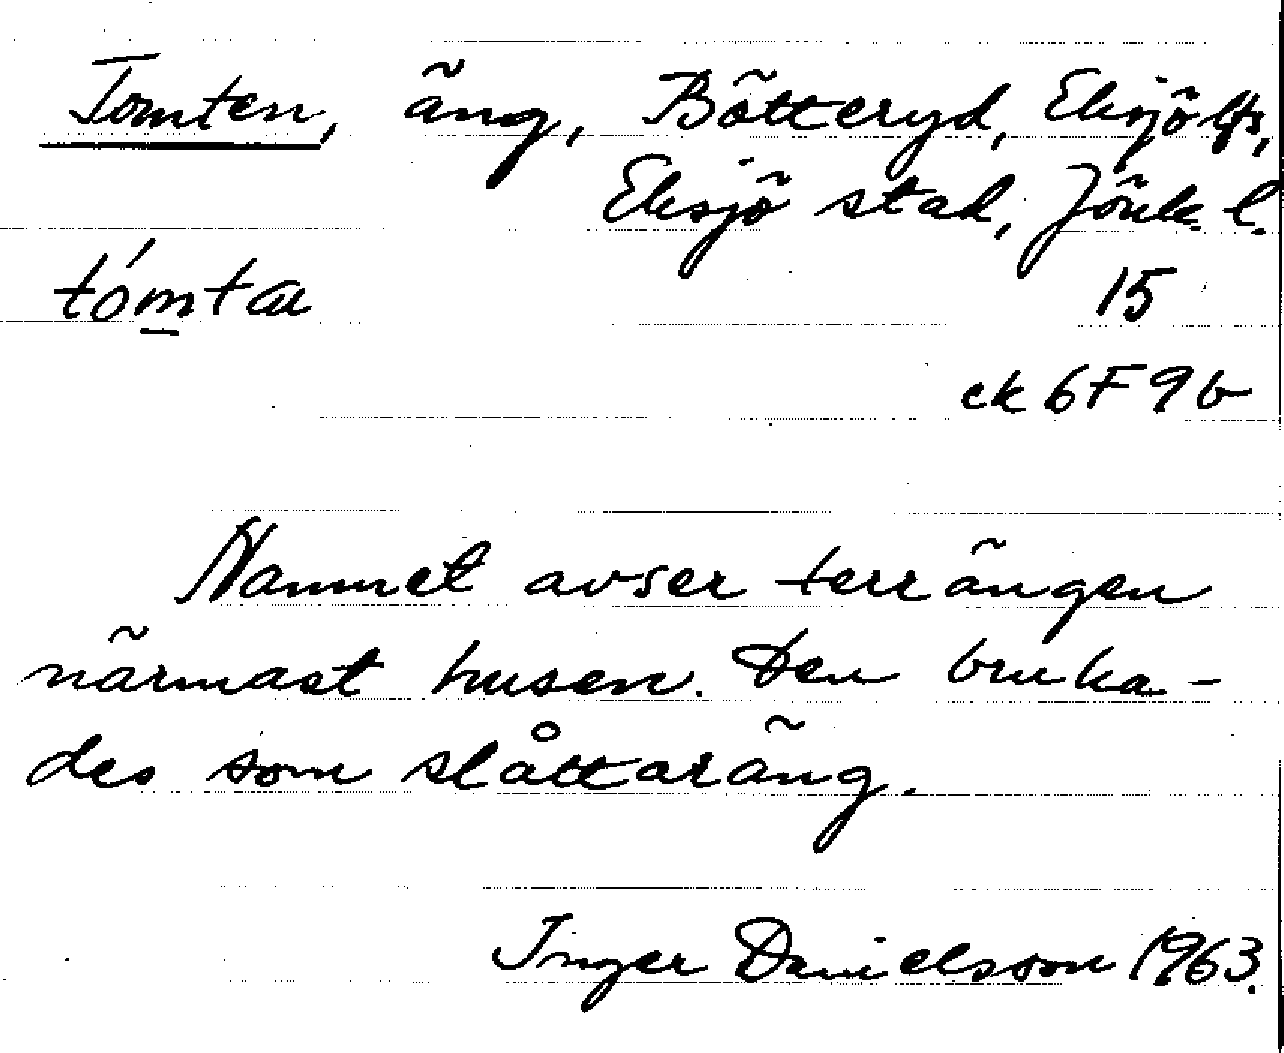 Tomten, äng, Bötteryd, Eksjö lfs,
Eksjö stad, Jönk. l.
tómta 15
ek 6F 9b
Namnet avser terrängen
närmast husen. Den bruka-
des som slåttaräng.
Inger Danielsson 1963.